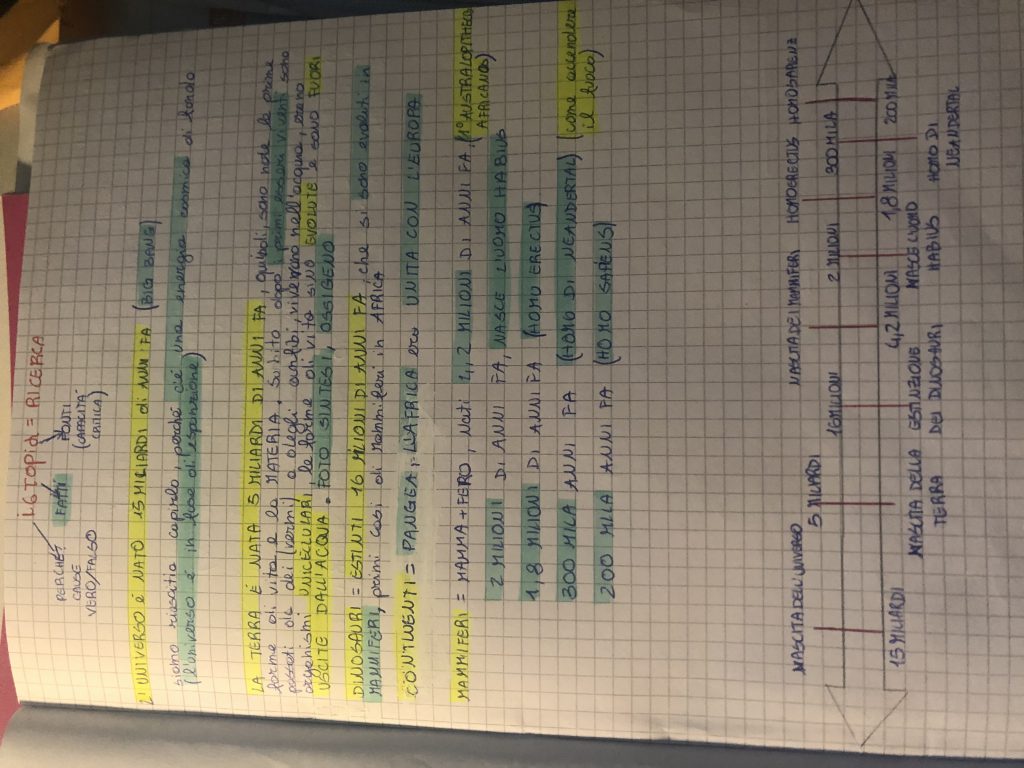 ιστορια = RICERCA
PERCHÉ? FATTI FONTI
CAUSE (CAPACITÀ
VERO/FALSO CRITICA)
L'UNIVERSO É NATO 15 MILIARDI di ANNI FA (BIG BANG)
siamo riusciti a capirlo, perché c'é una energia cosmica di fondo
(l'universo è in fase di espansione)
LA TERRA É NATA 5 MILIARDI DI ANNI FA, quindi sono nate le prime
forme di vita e la MATERIA. Subito dopo i primi esseri viventi sono
passati da dei (vermi) e degli anfibi, vivendo nell'acqua, erano
organismi UNICELLULARI, le forme di vita si sono EVOLUTE e sono FUORI
USCITE DALL'ACQUA. FOTO SINTESI, OSSIGENO
DINOSAURI = ESTINTI 16 MILIONI DI ANNI FA, che si sono evoluti in
MAMMIFERI, primi casi di Mammiferi in AFRICA
CONTINENTI = PANGEA, L'AFRICA era UNITA CON L'EUROPA
MAMMIFERI = MAMMA + FERO, Nati 4,2 MILIONI DI ANNI FA (1° AUSTRALOPITHECO
AFRICANUS)
2 MILIONI DI ANNI FA, NASCE L'UOMO HABILIS
1,8 MILIONI DI ANNI FA (HOMO ERECTUS)
300 MILA ANNI FA (HOMO DI NEANDERTAL) (come accendere
il fuoco)
200 MILA ANNI FA (HOMO SAPIENS)
NASCITA DELL'UNIVERSO NASCITA DEI MAMMIFERI HOMO ERECTUS HOMO SAPIENZ
5 MILIARDI 16 MILIONI 2 MILIONI 300 MILA
15 MILIARDI 4,2 MILIONI 1,8 MILIONI 200 MILA
NASCITA DELLA ESTINZIONE NASCE L'UOMO HOMO DI
TERRA DEI DINOSAURI HABILIS NEANDERTAL